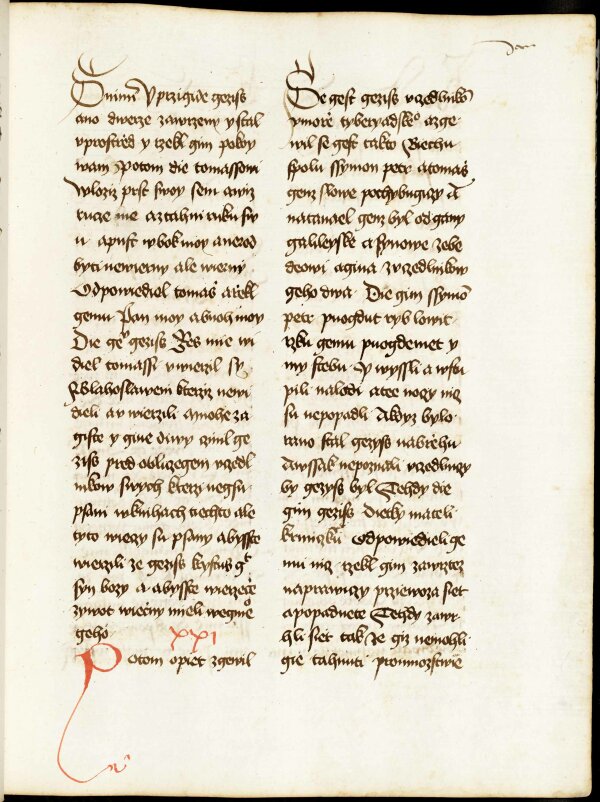 nimi Uprzigide geziss
ano dwerze zawrzeny y stal
vprostred y rzekl gim pokoy
wam Potom die tomassowi
wloziz prst swoy sem a wiz
rucze me a ztahni ruku sw
u a pust w bok moy a nerod
byti newierny ale wierny
Odpowiediel tomass a rzekl
gemu Pan moy a buoh moy
Die geͫ geziss Zes mie wi
diel tomassi vwierzil sy
Blahoslaweni kterziz newi
dieli a vwierzili Mnohe za
giste y gine diwy czinil ge
ziss pred obliczegem vczedl
nikow swych kterzi negsu
psani w knihach tiechto ale
tyto wieczy su psany abysste
wierzili ze geziss krystus gͭ
syn bozy a abysste wierzecze
zywot wieczny mieli wegmeͦ
geho
XXI
Potom opiet zgewil
Se gest geziss vczedlnikoͫ
v morze tyberyadskeͦ a zge
wil se gest takto Biechu
spolu ssymon petr a tomass
genz slowe pochybugiczy A
natanael genz byl od gany
galileyske a synowe zebe
deowi a gina z vczedlnikow
geho dwa Die gim ssymoͫ
petr puogdu t ryb lowit
rzku gemu puogdemet y
my stebu Y wyssli a wstu
pili na lodi a tee noczy nicz
su nepopadli A kdyz bylo
rano stal gezyss na brzehu
Awssak nepoznali vczedlniczy
by gezyss byl Tehdy die
gim geziss Dietky mateli
krmiczku Odpowiedieli ge
mu nicz rzekl gim zawrzter
naprawiczy przewoza siet
a popadnete Tehdy zawr
hli siet tak ze giz nemohli
gie tahnuti pro mnozstwie